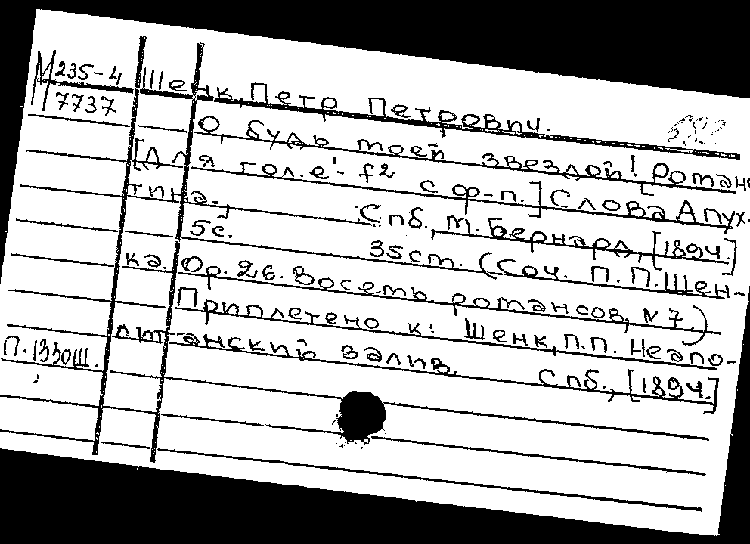 М 235-4
7737
Шенк, Петр Петрович.
О, будь моей звездой! [Романс]
[Для гол. e¹- f2 с ф-п.] Слова Апух-
тина.
Спб., М. Бернард, [1894.]
5с. 35ст. (Соч. П.П.Шен-
ка. Ор. 26. Восемь романсов, N 7.)
Приплетено к: Шенк, П.П. Неапо-
литанский залив. Спб., [1894.]
П.1330ш.